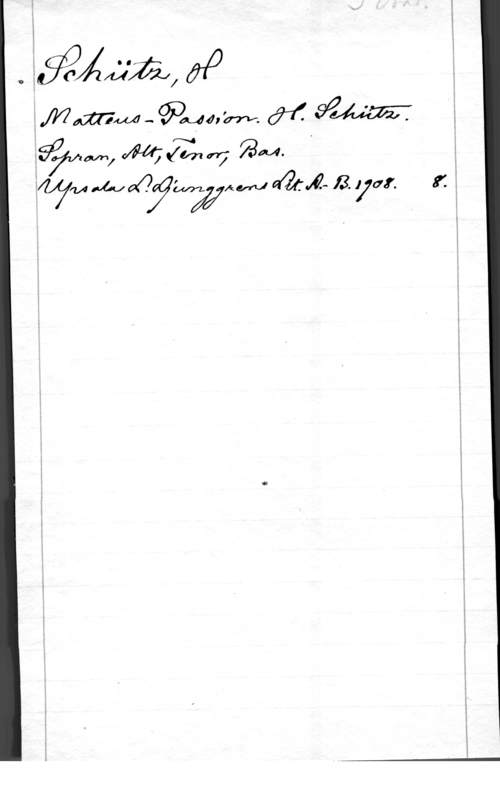 Schütz, H
Matteus-Passion. H. Schütz.
Sopran, Alt, Tenor, Bas.
Upsala L. Ljunggrens Lit. A.-B. 1908. 8.